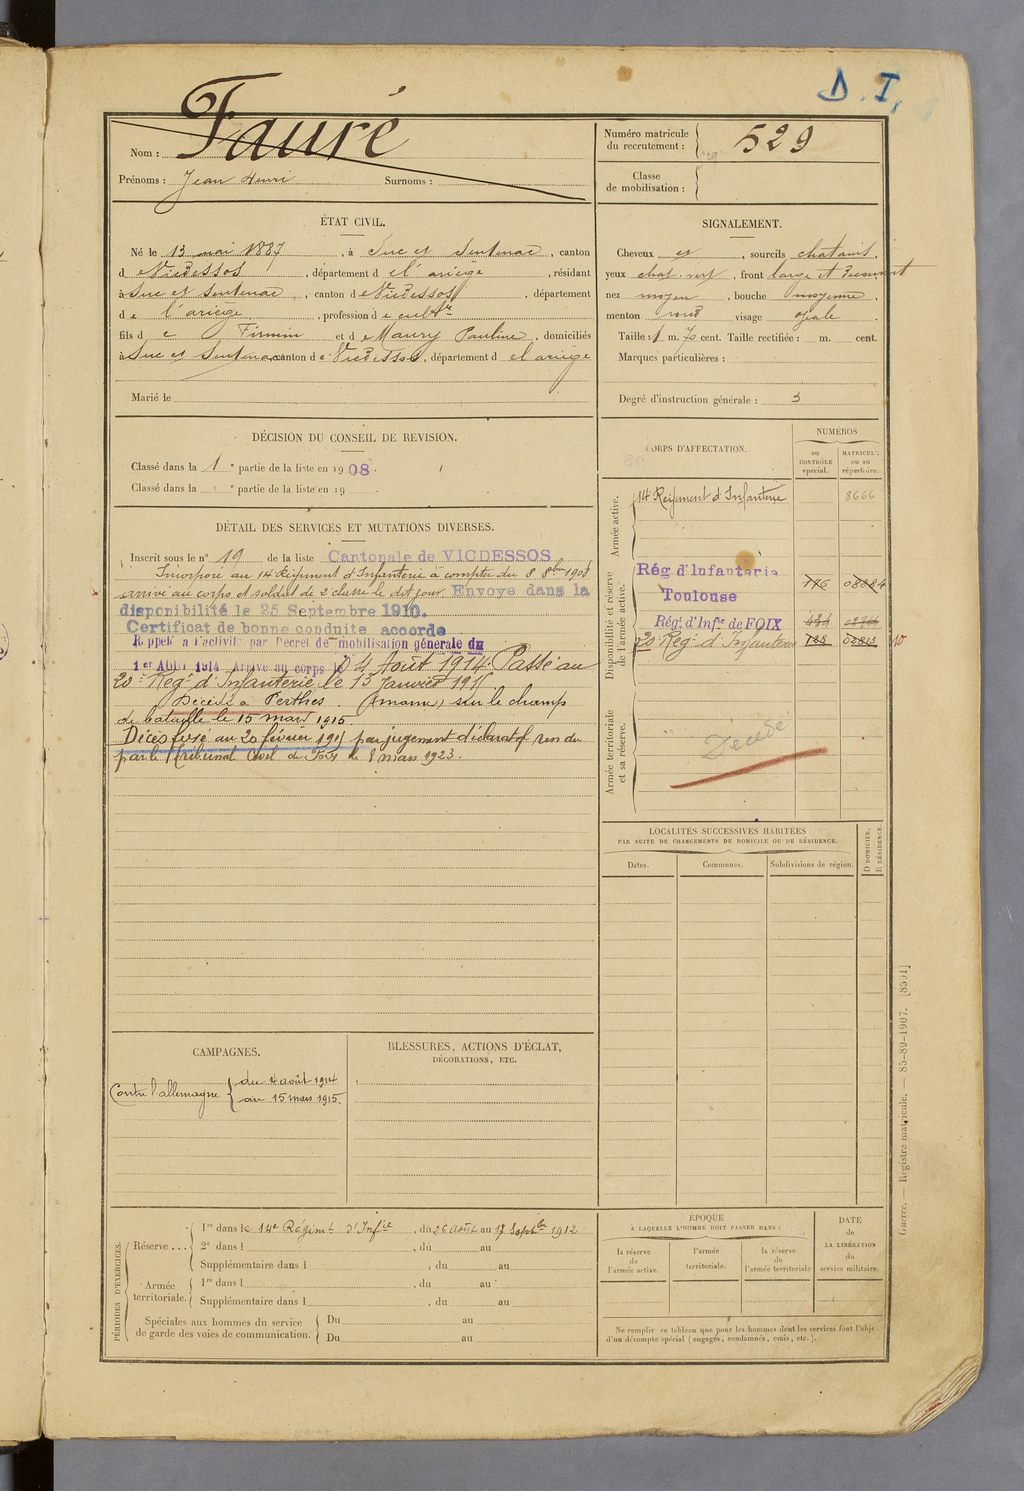 D. I.
Nom : Fauré
Prénoms : Jean Henri Surnoms :
Numéro matricule du recrutement : 529
Classe de mobilisation :
ÉTAT CIVIL.
Né le 13 mai 1887, à Suc et Sentenac, canton
de Vicdessos, département de l'ariège, résidant
à Suc et Sentenac, canton de Vicdessos, département
de l'ariège, profession de cultr
fils de Firmin et de Maury Pauline, domiciliés
à Suc et Sentenac, canton de Vicdessos, département de l'ariège
Marié le
SIGNALEMENT.
Cheveux et, sourcils chatains,
yeux chat. vert, front large et
nez moyen, bouche moyenne,
menton rond visage ovale
Taille : 1 m. 70 cent. Taille rectifiée : m. cent.
Marques particulières :
Degré d'instruction générale : 3
DÉCISION DU CONSEIL DE REVISION.
Classé dans la 1e partie de la liste en 1908.
Classé dans la e partie de la liste en 19
DÉTAIL DES SERVICES ET MUTATIONS DIVERSES.
Inscrit sous le n° 19 de la liste Cantonale de VICDESSOS
Incorporé au 14 Régiment d'Infanterie à compter du 8 8bre 1908
arrivé au corps et soldat de 2 classe le dit jour Envoyé dans la
disponibilité le 25 Septembre 1910.
Certificat de bonne conduite accordé
Rappelé à l'activité par Décret de mobilisation générale du
1er AOUT 1914 Arrivé au corps le 4 Août 1914. Passé au
20e Regt d'Infanterie le 13 Janvier 1915
Décédé à Perthes (Marne) sur le champ
de bataille le 15 mars 1915.
Décès fixé au 20 février 1915 par jugement déclaratif rendu
par le Tribunal Civil de Foix le 8 mars 1923.
CORPS D'AFFECTATION.
NUMÉROS
au CONTRÔLE spécial.
MATRICULE ou au répertoire.
Armée active.
14 Régiment d'Infanterie 8666
Disponibilité et réserve de l'armée active.
Rég. d'Infanterie
Toulouse
Régt d'Infie de FOIX
20 Reg. d'Infanterie
Armée territoriale et sa réserve.
Décédé
LOCALITÉS SUCCESSIVES HABITÉES
PAR SUITE DE CHANGEMENTS DE DOMICILE OU DE RÉSIDENCE.
Dates. Communes. Subdivisions de région.
D DOMICILE. R RÉSIDENCE.
CAMPAGNES.
Contre l'allemagne { du 4 août 1914
au 15 mars 1915.
BLESSURES, ACTIONS D'ÉCLAT,
DÉCORATIONS, ETC.
PÉRIODES D'EXERCICES.
Réserve...
1re dans le 14e Régimt d'Infie, du 26 Août au 17 Septbre 1912
2e dans l , du au
Supplémentaire dans l , du au
Armée territoriale.
1re dans l , du au
Supplémentaire dans l , du au
Spéciales aux hommes du service
de garde des voies de communication.
Du au
Du au
ÉPOQUE
À LAQUELLE L'HOMME DOIT PASSER DANS :
la réserve de l'armée active.
l'armée territoriale.
la réserve de l'armée territoriale
DATE de LA LIBÉRATION du service militaire.
Ne remplir ce tableau que pour les hommes dont les services font l'objet
d'un décompte spécial (engagés, condamnés, omis, etc.).
Guerre. — Registre matricule. — 85-89-1907. [8501]